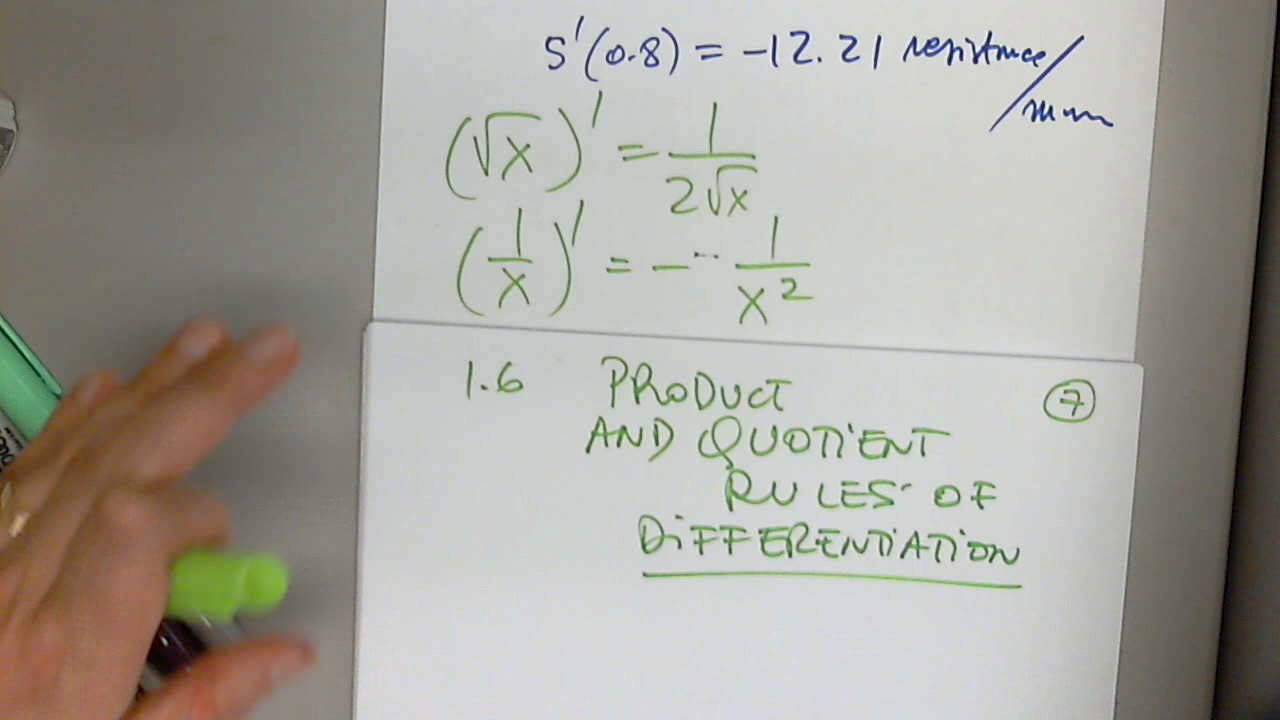 S'(0.8) = -12.21 resistance/mm
(√x)' = 1/(2√x)
(1/x)' = - 1/x²
1.6 PRODUCT
7
AND QUOTIENT
RULES OF
DIFFERENTIATION